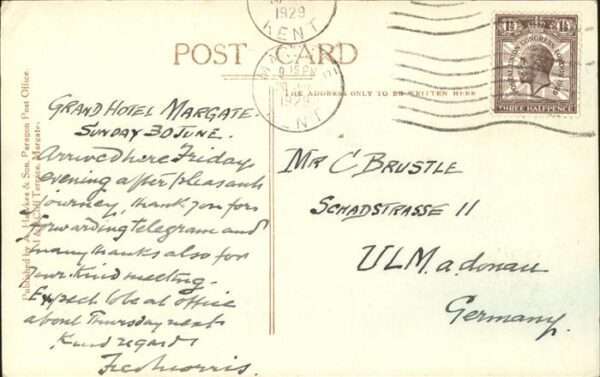 1929
KENT
POST CARD
MARGATE
9.15 PM
1929
KENT
THE ADDRESS ONLY TO BE WRITTEN HERE
POSTAL UNION CONGRESS LONDON 1929
THREE HALFPENCE
GRAND HOTEL MARGATE.
SUNDAY 30 JUNE.
Arrived here Friday
evening after pleasant
journey, thank you for
forwarding telegram and
many thanks also for
your kind meeting.
Expect to be at office
about Thursday next
Kind regards
Fred Morris.
MR C BRUSTLE
SCHADSTRASSE 11
ULM a. donau
Germany.
Published by A. & Son, Paragon Post Office,
Terrace, Margate.